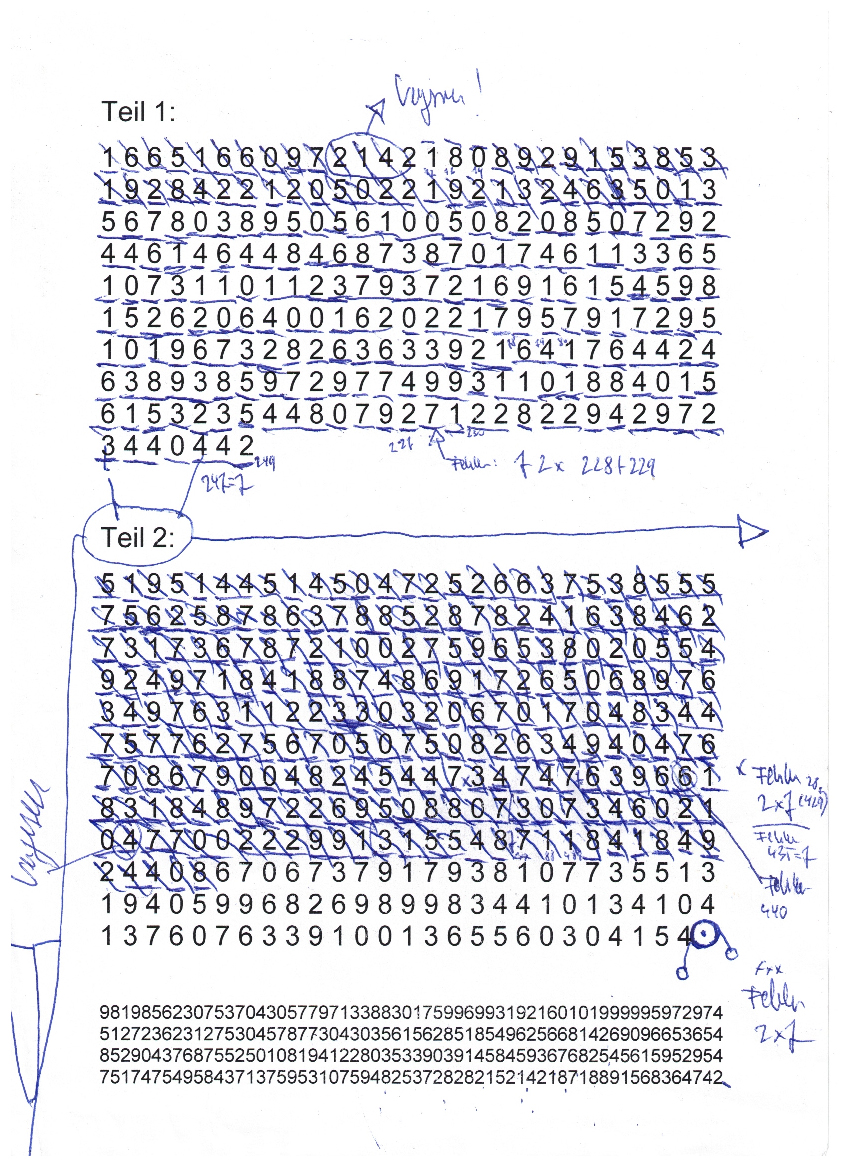 Teil 1:
1 6 6 5 1 6 6 0 9 7 2 1 4 2 1 8 0 8 9 2 9 1 5 3 8 5 3
1 9 2 8 4 2 2 1 2 0 5 0 2 2 1 9 2 1 3 2 4 6 3 5 0 1 3
5 6 7 8 0 3 8 9 5 0 5 6 1 0 0 5 0 8 2 0 8 5 0 7 2 9 2
4 4 6 1 4 6 4 4 8 4 6 8 7 3 8 7 0 1 7 4 6 1 1 3 3 6 5
1 0 7 3 1 1 0 1 1 2 3 7 9 3 7 2 1 6 9 1 6 1 5 4 5 9 8
1 5 2 6 2 0 6 4 0 0 1 6 2 0 2 2 1 7 9 5 7 9 1 7 2 9 5
1 0 1 9 6 7 3 2 8 2 6 3 6 3 3 9 2 1 6 4 1 7 6 4 4 2 4
6 3 8 9 3 8 5 9 7 2 9 7 7 4 9 9 3 1 1 0 1 8 8 4 0 1 5
6 1 5 3 2 3 5 4 4 8 0 7 9 2 7 1 2 2 8 2 2 9 4 2 9 7 2
3 4 4 0 4 4 2
249
247=7
227
Fehler: 7 2x 228+229
Teil 2:
5 1 9 5 1 4 4 5 1 4 5 0 4 7 2 5 2 6 6 3 7 5 3 8 5 5 5
7 5 6 2 5 8 7 8 6 3 7 8 8 5 2 8 7 8 2 4 1 6 3 8 4 6 2
7 3 1 7 3 6 7 8 7 2 1 0 0 2 7 5 9 6 5 3 8 0 2 0 5 5 4
9 2 4 9 7 1 8 4 1 8 8 7 4 8 6 9 1 7 2 6 5 0 6 8 9 7 6
3 4 9 7 6 3 1 1 2 2 3 3 0 3 2 0 6 7 0 1 7 0 4 8 3 4 4
7 5 7 7 6 2 7 5 6 7 0 5 0 7 5 0 8 2 6 3 4 9 4 0 4 7 6
7 0 8 6 7 9 0 0 4 8 2 4 5 4 4 7 3 4 7 4 7 6 3 9 6 6 1
8 3 1 8 4 8 9 7 2 2 6 9 5 0 8 8 0 7 3 0 7 3 4 6 0 2 1
0 4 7 7 0 0 2 2 2 9 9 1 3 1 5 5 4 8 7 1 1 8 4 1 8 4 9
2 4 4 0 8 6 7 0 6 7 3 7 9 1 7 9 3 8 1 0 7 7 3 5 5 1 3
1 9 4 0 5 9 9 6 8 2 6 9 8 9 9 8 3 4 4 1 0 1 3 4 1 0 4
1 3 7 6 0 7 6 3 3 9 1 0 0 1 3 6 5 5 6 0 3 0 4 1 5 4
Fehler
2x7 (429)
Fehler
431=7
Fehler
440
Fehler
2x7
981985623075370430577971338830175996993192160101999995972974
512723623127530457877304303561562851854962566814269096653654
852904376875525010819412280353390391458459367682545615952954
751747549584371375953107594825372828215214218718891568364742